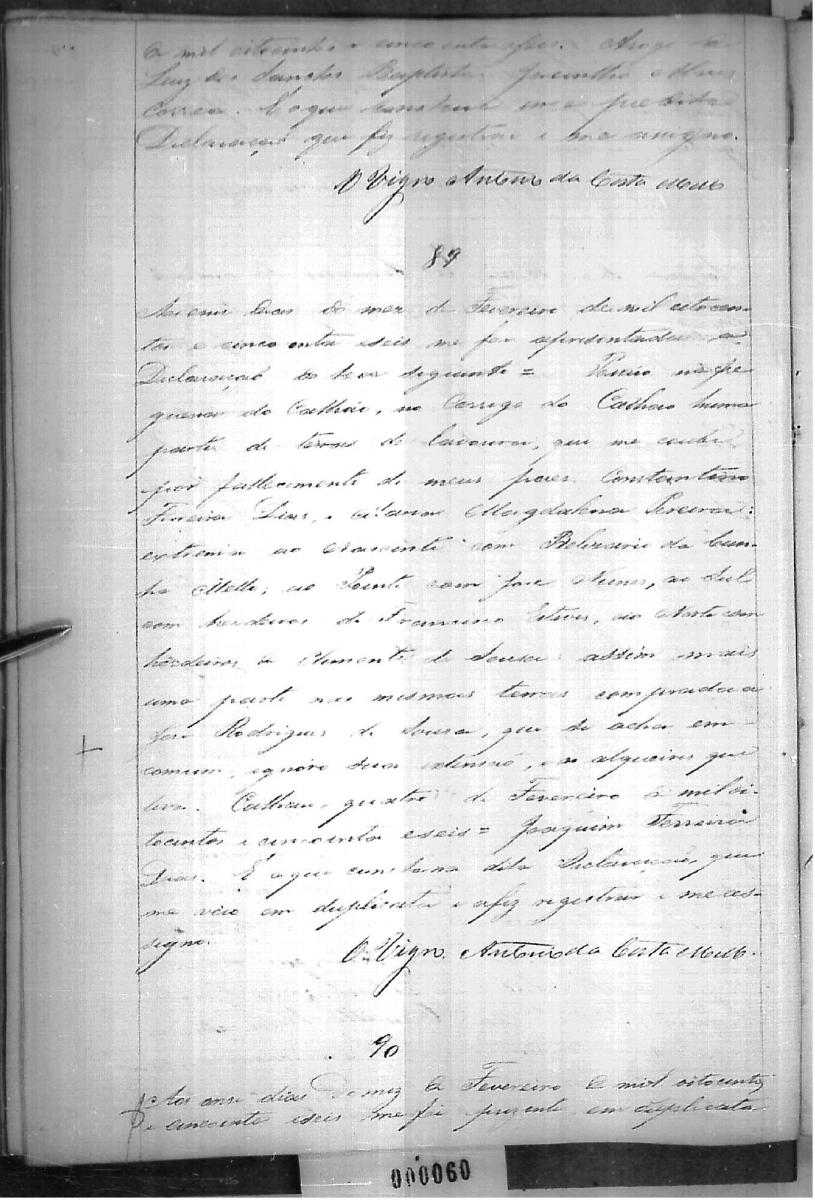 de mil oitocentos e cincoenta eseis. Arogo de
Luiz dos Sanctos Baptista Jacintho Alves
Correa. E o que constava em a predita
Declaração que fiz registrar e me assigno.
O Vigro Antonio da Costa Mello
89
Aos onze dias do mez de Fevereiro de mil oitocen-
tos e cincoenta eseis me foi apresentada a
Declaração do theor seguinte = Possuo na fre
guesia do Calháo, no Corrego do Calháo huma
parte de terras de lavoura, que me coube
por fallecimento de meus paes Constantino
Ferreira Dias, e Maria Magdalena Pereira:
extrema ao Nascente com Belizario da Cun-
ha Mello; ao Poente com José Nunes, ao Sul
com herdeiros de Francisco Esteves, ao Norte com
herdeiros de Clemente de Sousa: assim mais
uma parte nas mesmas terras comprada a
José Rodrigues de Sousa, que se acha em
comum, ignoro sua extensão, e os alqueires que
leva. Calháo, quatro de Fevereiro de mil oi-
tocentos e cincoenta eseis = Joaquim Ferreira
Dias. E o que consta na dita Declaração, que
me veio em duplicata e afiz registrar e me as-
signo.
O Vigro Antonio da Costa Mello.
90
Aos onse dias do mez de Fevereiro de mil oitocentos
e cincoenta eseis me foi prezente em duplicata
000060